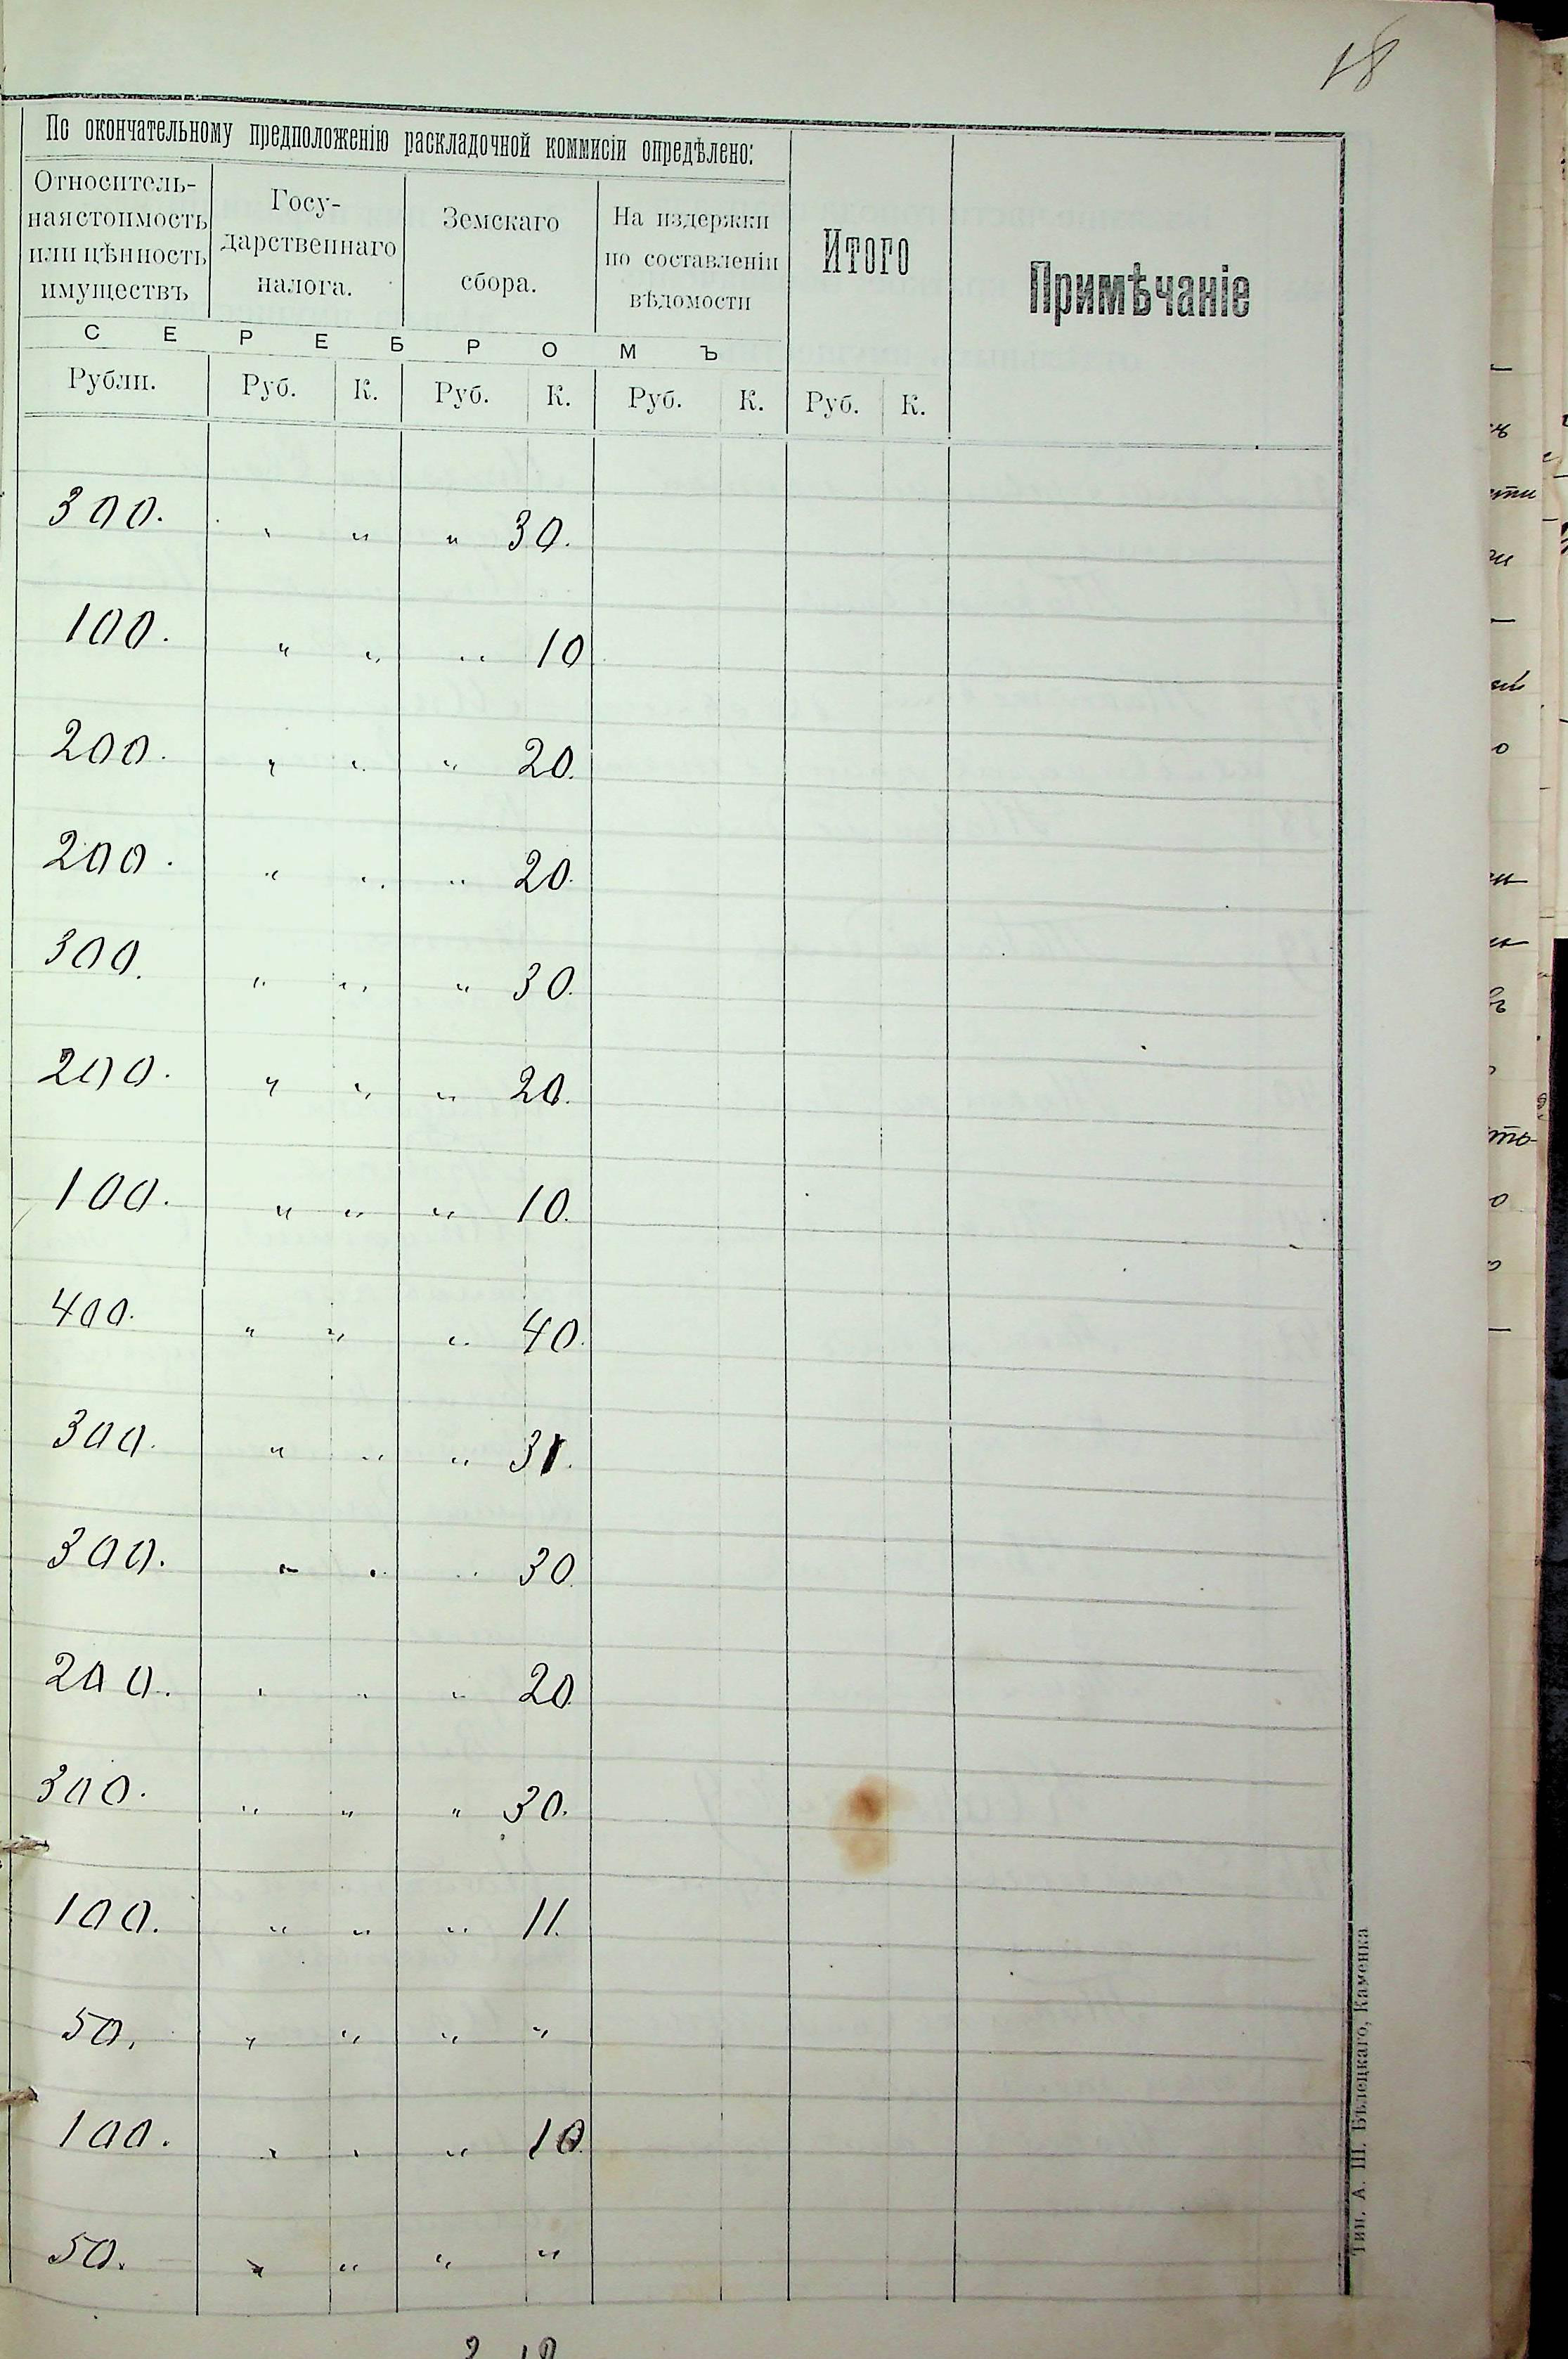 18
По окончательному предположенію раскладочной коммисіи опредѣлено:
Относитель-
ная стоимость
или цѣнность
имуществъ
Госу-
дарственнаго
налога.
Земскаго
сбора.
На издержки
по составленіи
вѣдомости
Итого
Примѣчаніе
С Е Р Е Б Р О М Ъ
Рубли. Руб. К. Руб. К. Руб. К. Руб. К.
300. " " " 30.
100. " " " 10
200. " " " 20.
200. " " " 20.
300. " " " 30.
200. " " " 20.
100. " " " 10.
400. " " " 40.
300. " " " 31.
300. " " " 30.
200. " " " 20.
300. " " " 30.
100. " " " 11.
50. " " " "
100. " " " 10.
50. " " " "
Тип. А. Ш. Бѣлецкаго, Каменка